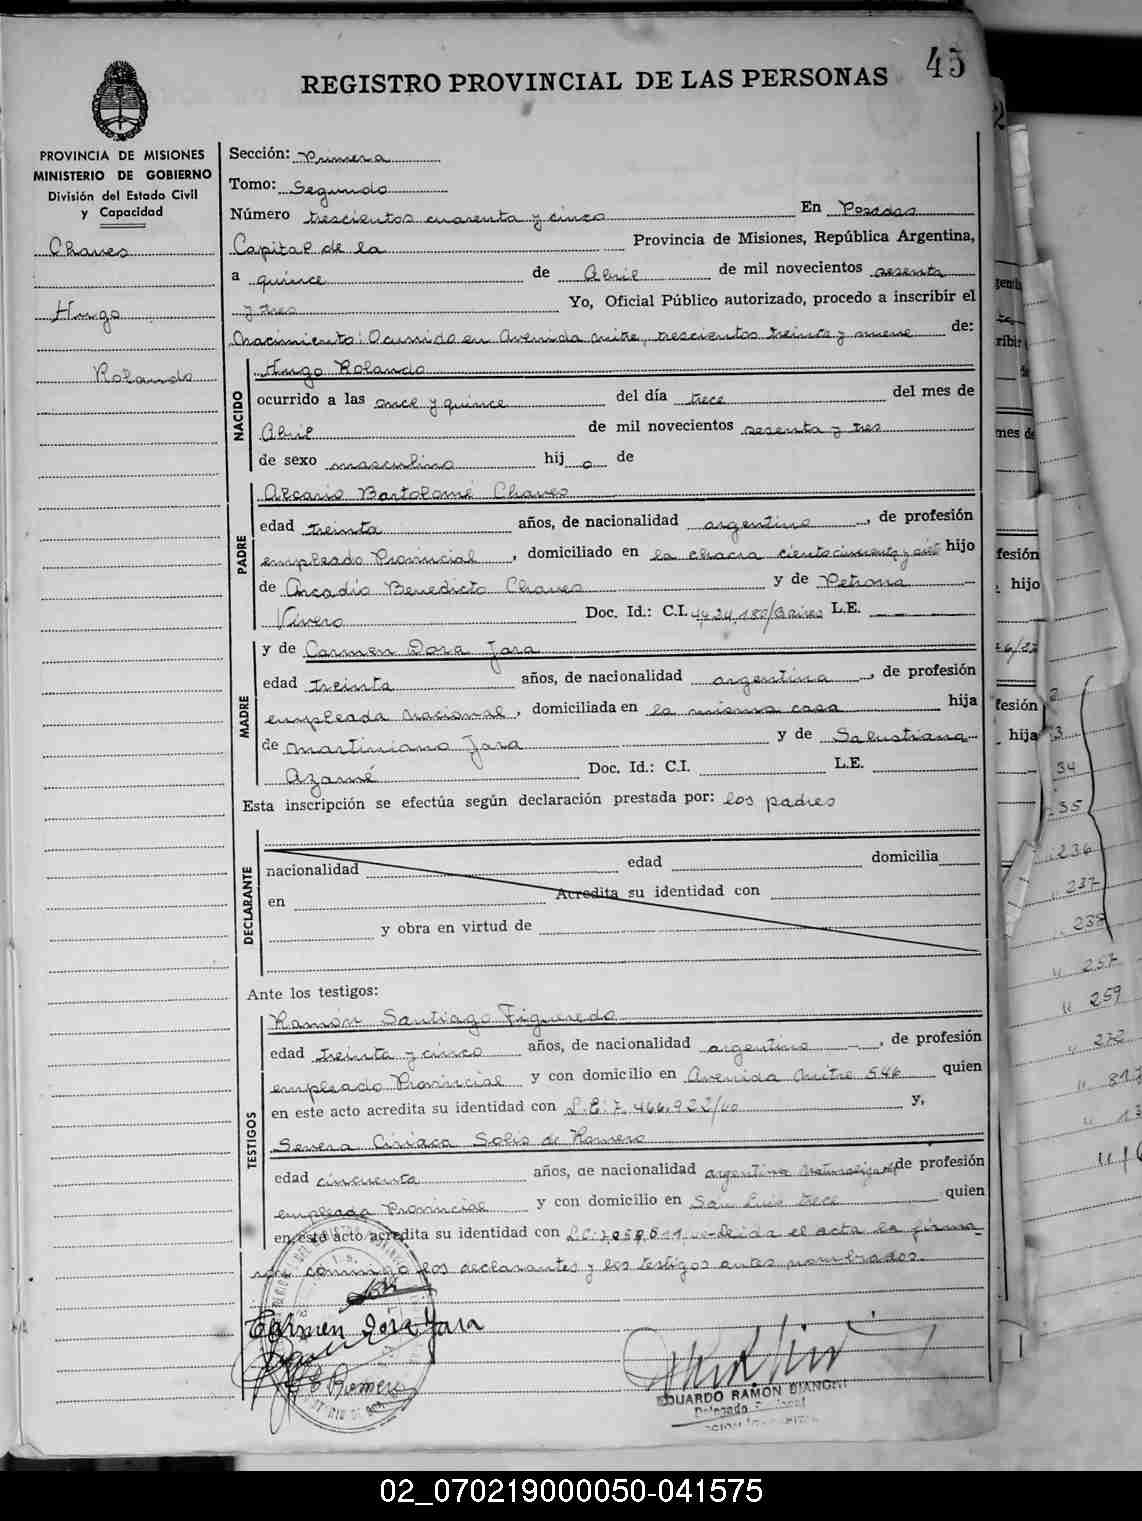 45
REGISTRO PROVINCIAL DE LAS PERSONAS
PROVINCIA DE MISIONES
MINISTERIO DE GOBIERNO
División del Estado Civil
y Capacidad
Chaves
Hugo
Rolando
Sección: Primera
Tomo: Segundo
Número trescientos cuarenta y cinco En Posadas
Capital de la Provincia de Misiones, República Argentina,
a quince de Abril de mil novecientos sesenta
y tres Yo, Oficial Público autorizado, procedo a inscribir el
Nacimiento: Ocurrido en Avenida Mitre, trescientos treinta y nueve de:
NACIDO
Hugo Rolando
ocurrido a las once y quince del día trece del mes de
Abril de mil novecientos sesenta y tres
de sexo masculino hijo de
PADRE
Bartolomé Chaves
edad treinta años, de nacionalidad argentino, de profesión
empleado Provincial, domiciliado en la chacra ciento cincuenta y siete hijo
de Arcadio Benedicto Chaves y de Petrona
Vivero Doc. Id.: C.I. L.E.
MADRE
y de Carmen Dora Jara
edad treinta años, de nacionalidad argentina, de profesión
empleada Nacional, domiciliada en la misma casa hija
de Martiniano Jara y de Salustiana
Azamé Doc. Id.: C.I. L.E.
Esta inscripción se efectúa según declaración prestada por: los padres
DECLARANTE
nacionalidad edad domicilia
en Acredita su identidad con
y obra en virtud de
Ante los testigos:
TESTIGOS
Ramón Santiago Figueredo
edad treinta y cinco años, de nacionalidad argentino, de profesión
empleado Provincial y con domicilio en Avenida Mitre 546 quien
en este acto acredita su identidad con L.E. 7.466.922/40 y,
Severa Ciriaca Solis de Romero
edad cincuenta años, de nacionalidad argentina naturalizada de profesión
empleada Provincial y con domicilio en San Luis trece quien
en este acto acredita su identidad con Leida el acta la firma-
ron conmigo los declarantes y los testigos antes nombrados.
Carmen Dora Jara
Romero
EDUARDO RAMON BIANCHI
02_070219000050-041575